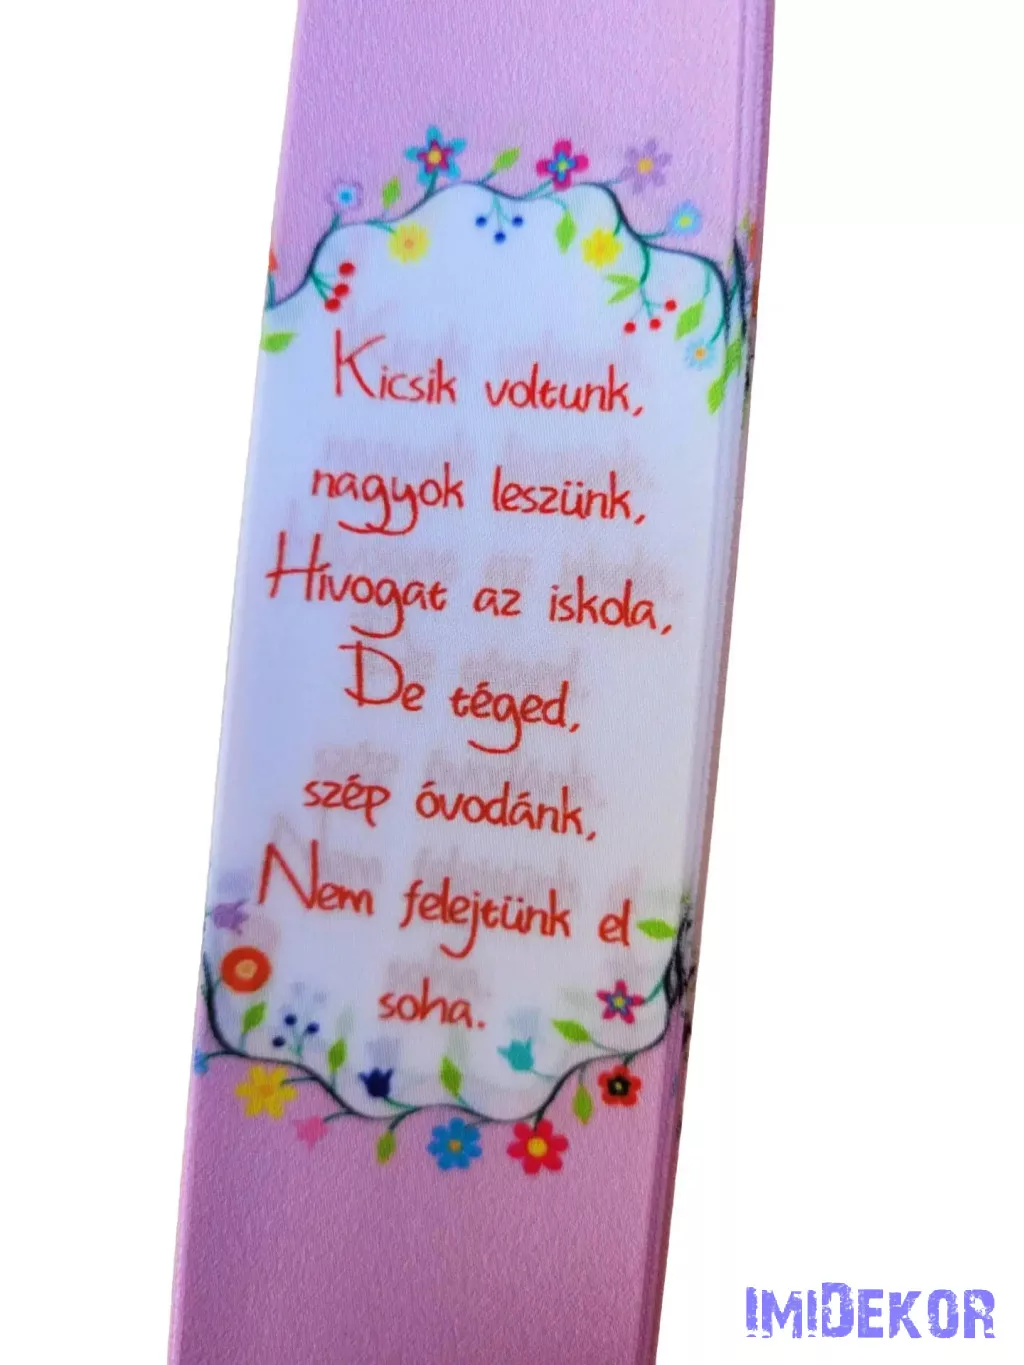 Kicsik voltunk,
nagyok leszünk,
Hívogat az iskola,
De téged,
szép óvodánk,
Nem felejtünk el
soha.
IMIDEKOR